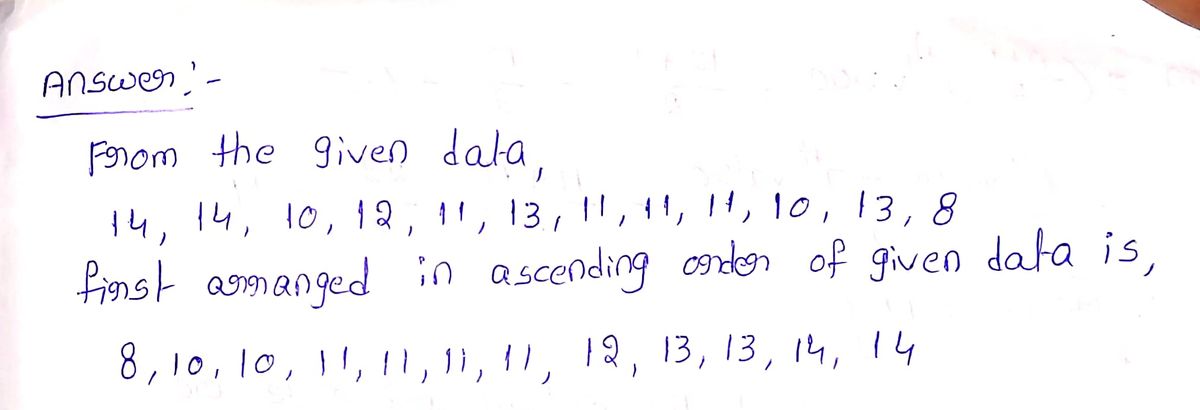 Answer:-
From the given data,
14, 14, 10, 12, 11, 13, 11, 11, 11, 10, 13, 8
first arranged in ascending order of given data is,
8, 10, 10, 11, 11, 11, 11, 12, 13, 13, 14, 14